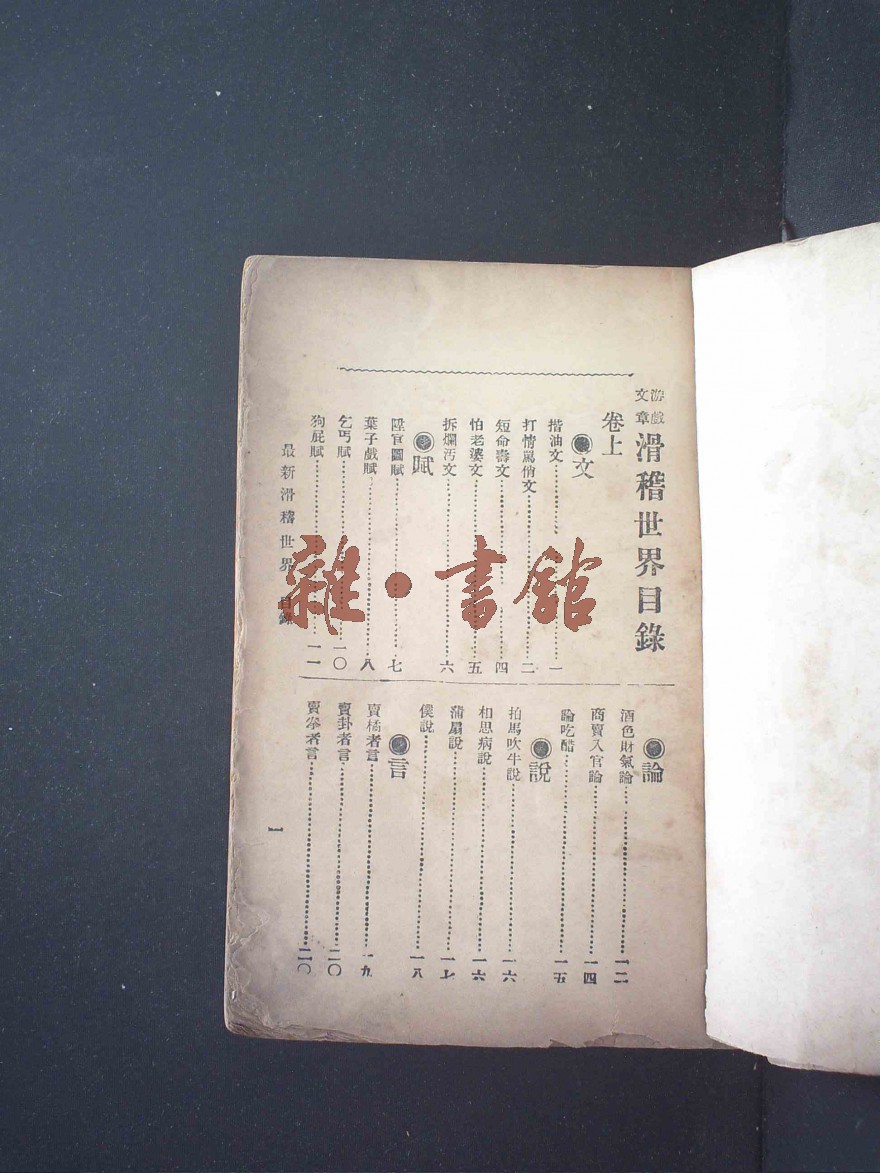 游戲文章 滑稽世界目錄
卷上
文
揩油文 一
打情罵俏文 二
短命壽文 四
怕老婆文 五
拆爛汚文 六
賦
陞官圖賦 七
葉子戲賦 八
乞丐賦 一〇
狗屁賦 一一
論
酒色財氣論 一二
商賣入官論 一四
論吃醋 一五
說
拍馬吹牛說 一六
相思病說 一六
蒲扇說 一七
僕說 一八
言
賣橘者言 一九
賣卦者言 二〇
賣拳者言 二〇
最新滑稽世界 目錄
一
雜·書館